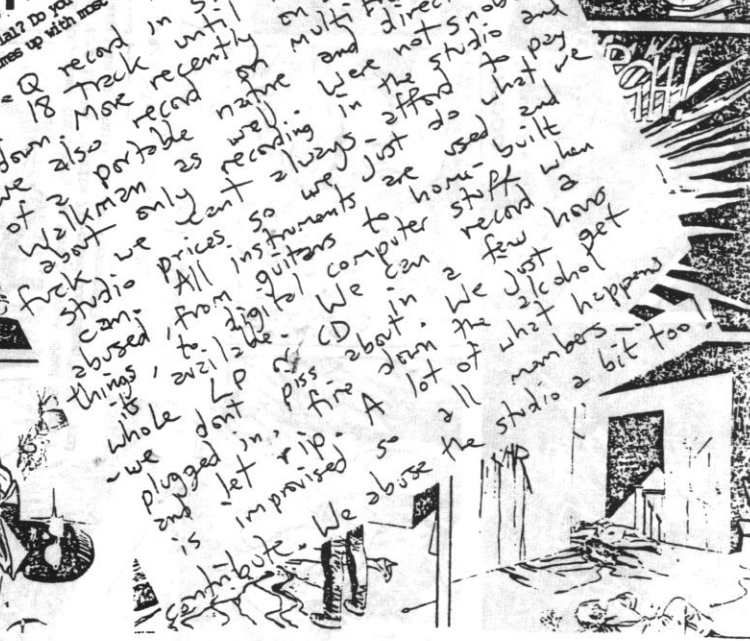 Do you
up with most
Q record in
18 Track until on
down. More recently
we also record on multi
of a portable nature and direc
Walkman as well. Were not snob
about only recording in the studio and
fuck we cant always afford to pay
studio prices so we just do what we
can. All instruments are used and
abused, from guitars to home-built
things, to digital computer stuff when
it available. We can record a
whole LP or CD in a few hours
-we dont piss about. We just get
plugged in, fire down the alcohol
and let rip. A lot of what happens
is improvised so all members
contribute. We abuse the studio a bit too.